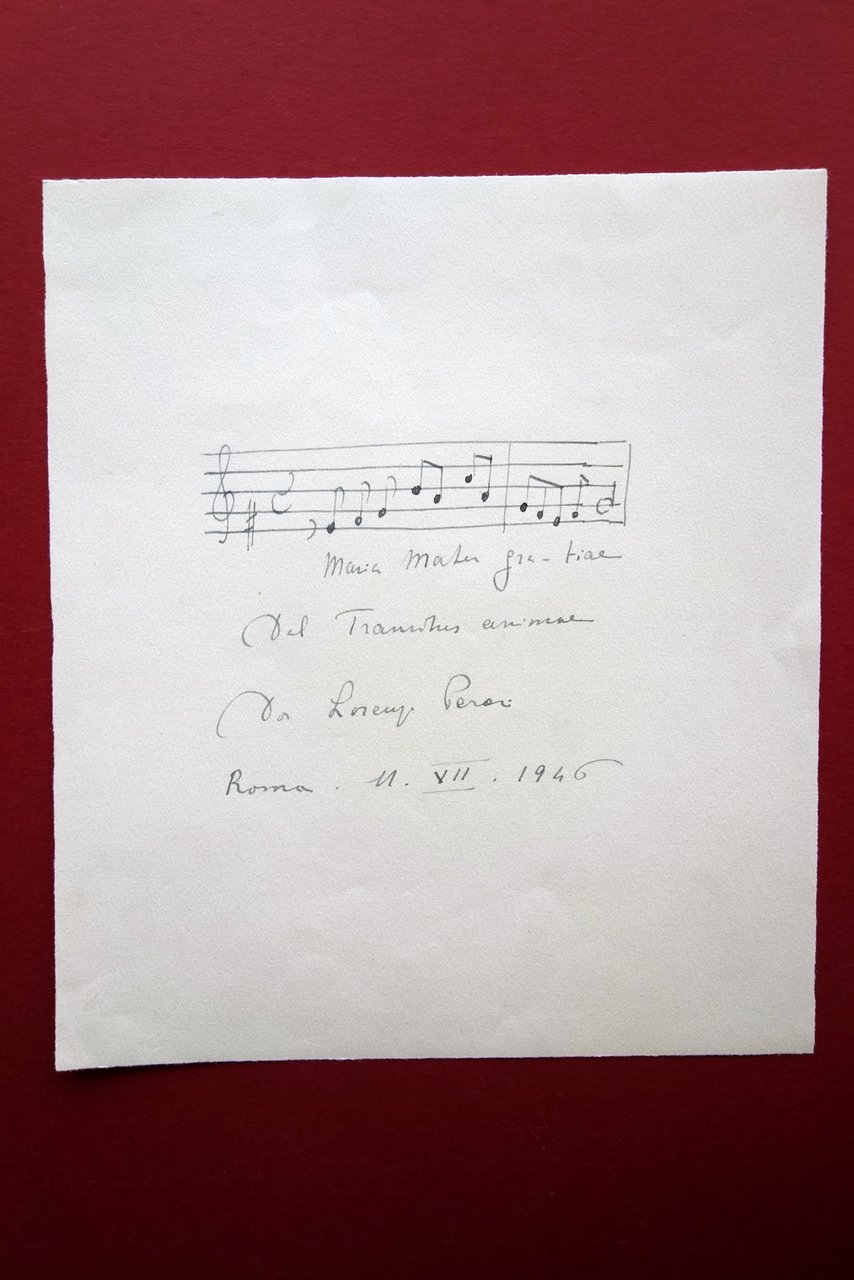 Maria Mater gra - tiae
Dal Transitus animae
Don Lorenzo Perosi
Roma . 11. XII . 1946